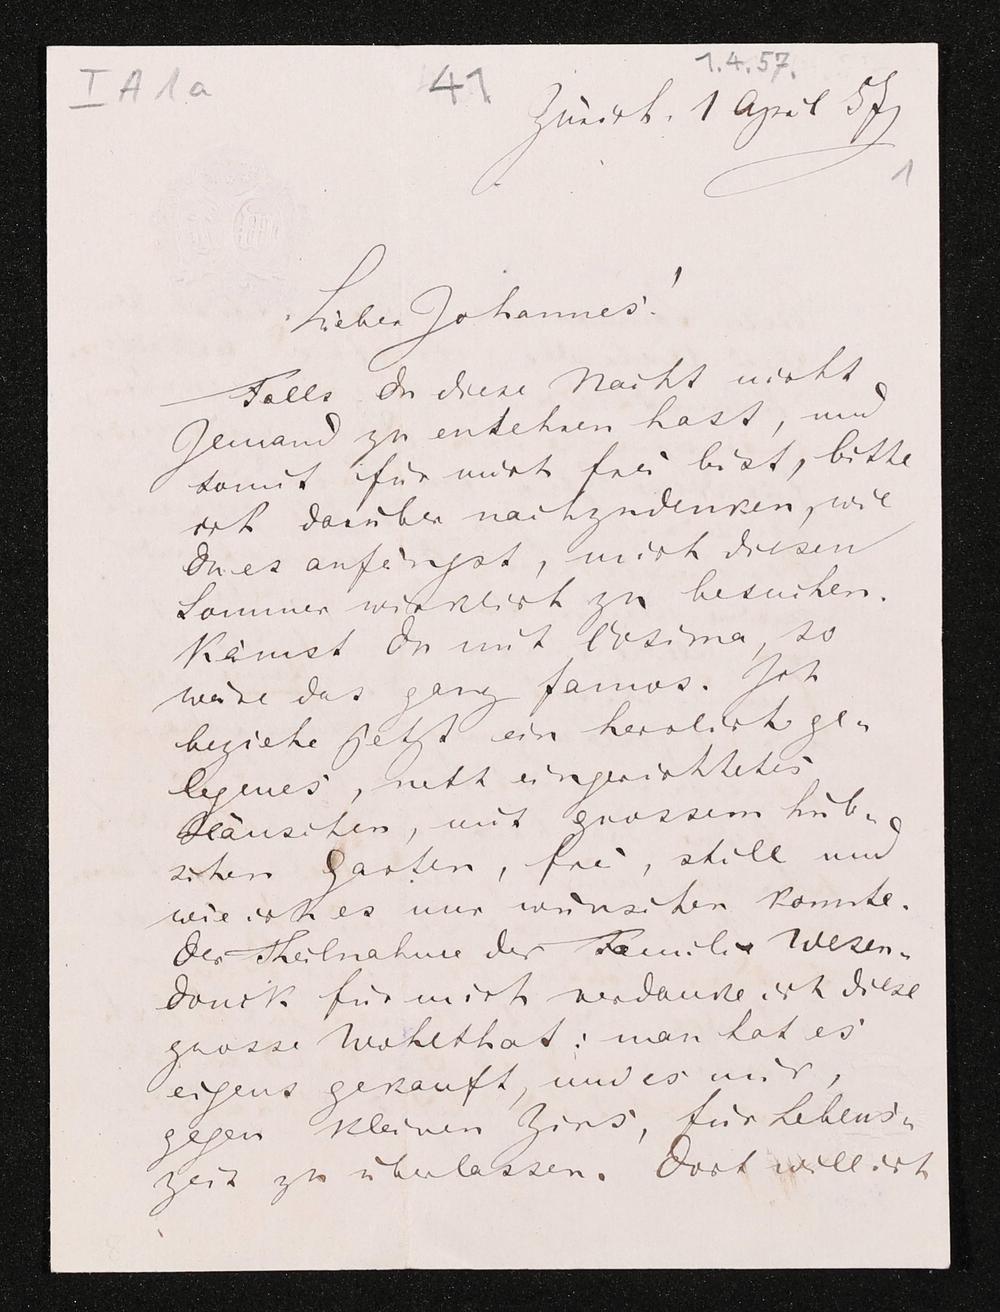 I A 1 a 41 1.4.57.
Zürich. 1 April 57
1
Lieber Johannes!
Falls du diese Nacht nicht
Jemand zu entehren hast, und
somit für mich frei bist, bitte
ich darüber nachzudenken, wie
du es anfängst, mich diesen
Sommer wirklich zu besuchen.
Kämst du mit Cosima, so
wäre das ganz famos. Ich
beziehe jetzt ein herrlich ge-
legenes, nett eingerichtetes
Häuschen, mit grossem hüb-
schen Garten, frei, still und
wie ich es nur wünschen konnte.
Der Theilnahme der Familie Wesen-
donck für mich verdanke ich diese
grosse Wohlthat: man hat es
eigens gekauft, um es mir,
gegen kleinen Zins, für Lebens-
zeit zu überlassen. Dort will ich